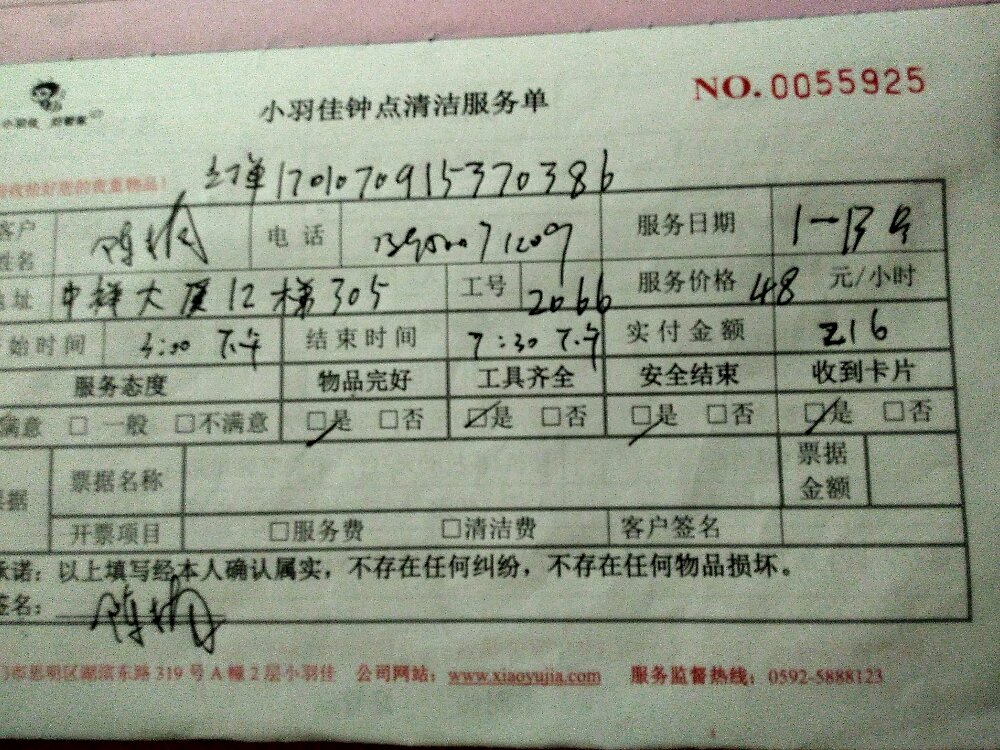 小羽佳钟点清洁服务单 NO.0055925
小羽佳
订单1701070915370386
客户姓名 电话 服务日期
地址 中祥大厦12梯305 工号 2066 服务价格 48 元/小时
开始时间 3:00 下午 结束时间 7:30 下午 实付金额 216
服务态度 物品完好 工具齐全 安全结束 收到卡片
满意 □ 一般 □不满意 □是 □否 □是 □否 □是 □否 □是 □否
票据 票据名称 票据金额
开票项目 □服务费 □清洁费 客户签名
承诺：以上填写经本人确认属实，不存在任何纠纷，不存在任何物品损坏。
签名：
门市思明区湖滨东路319号A幢2层小羽佳 公司网站：www.xiaoyujia.com 服务监督热线：0592-5888123